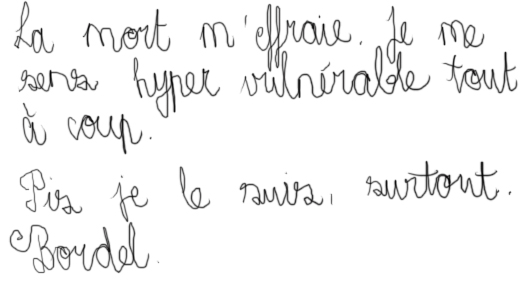 La mort m'effraie. Je me
sens hyper vulnérable tout
à coup.
Pis je le suis, surtout.
Bordel.